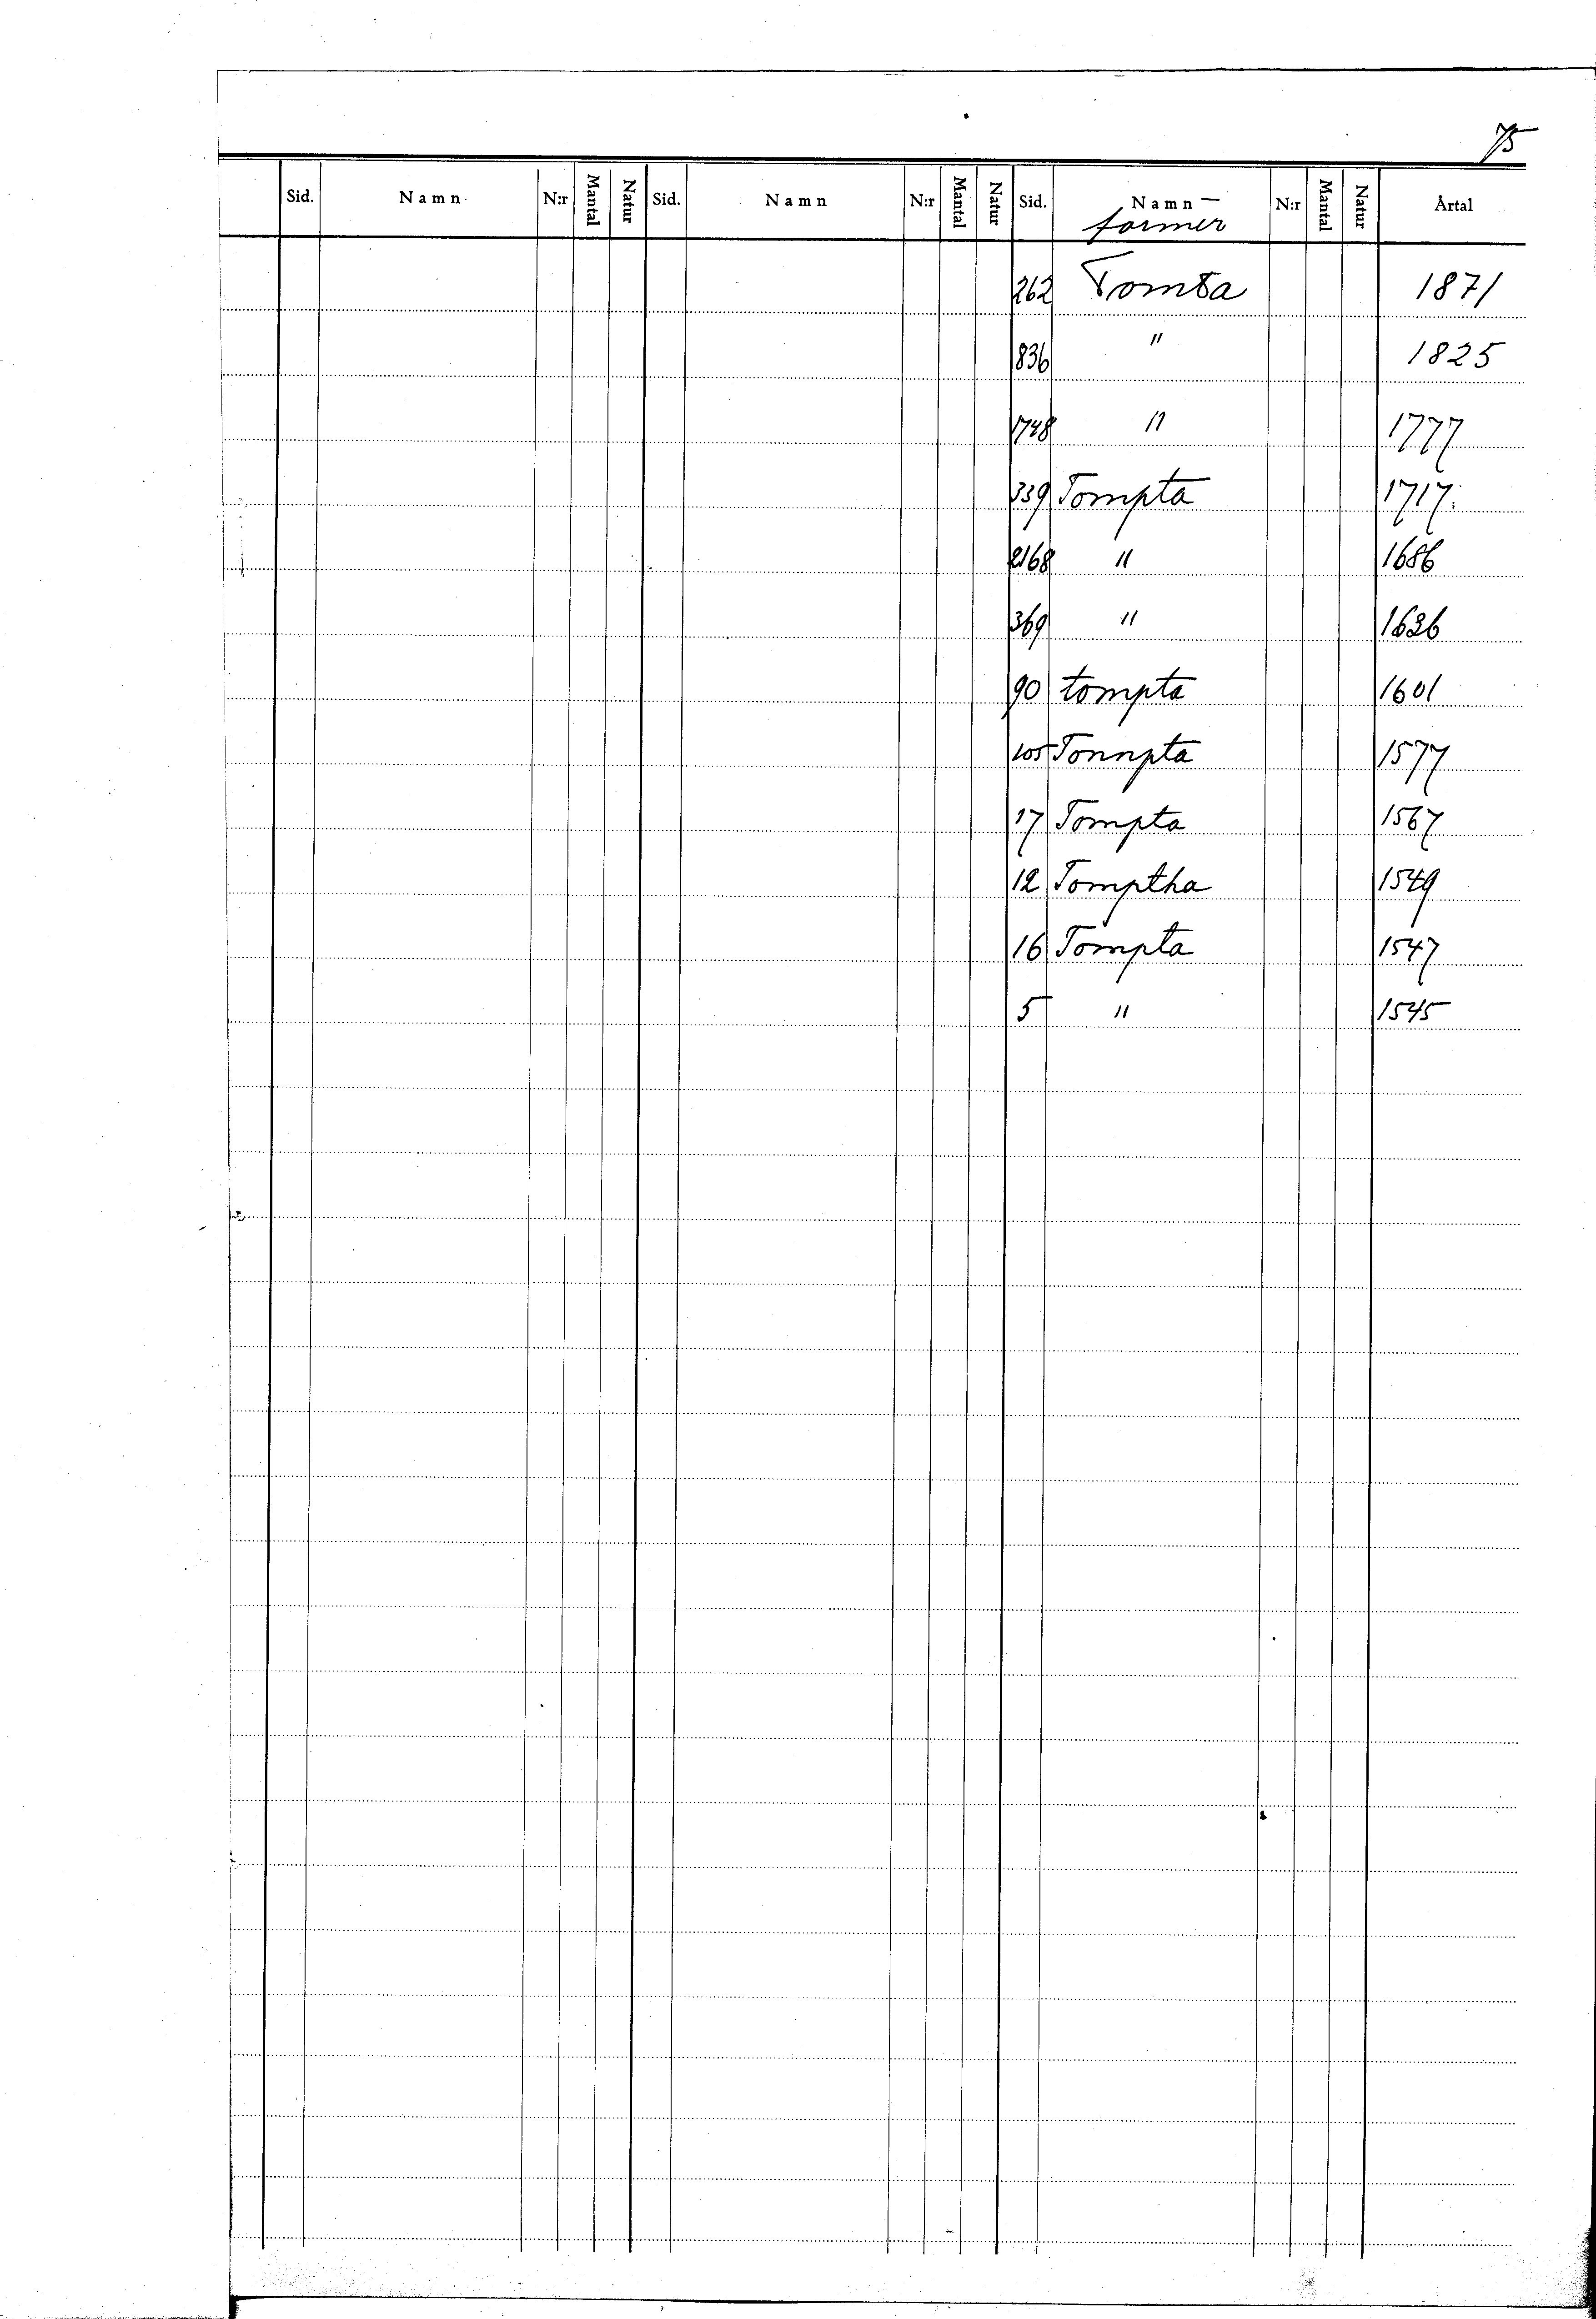 75
Sid. Namn N:r Mantal Natur Sid. Namn N:r Mantal Natur Sid. Namn— N:r Mantal Natur Årtal
former
262 Tomta 1871
836 " 1825
1748 " 1777
339 Tompta 1717.
2168 " 1686
369 " 1636
90 tompta 1601
105 Tonnpta 1577
17 Tompta 1567
12 Tomptha 1549
16 Tompta 1547
5 " 1545